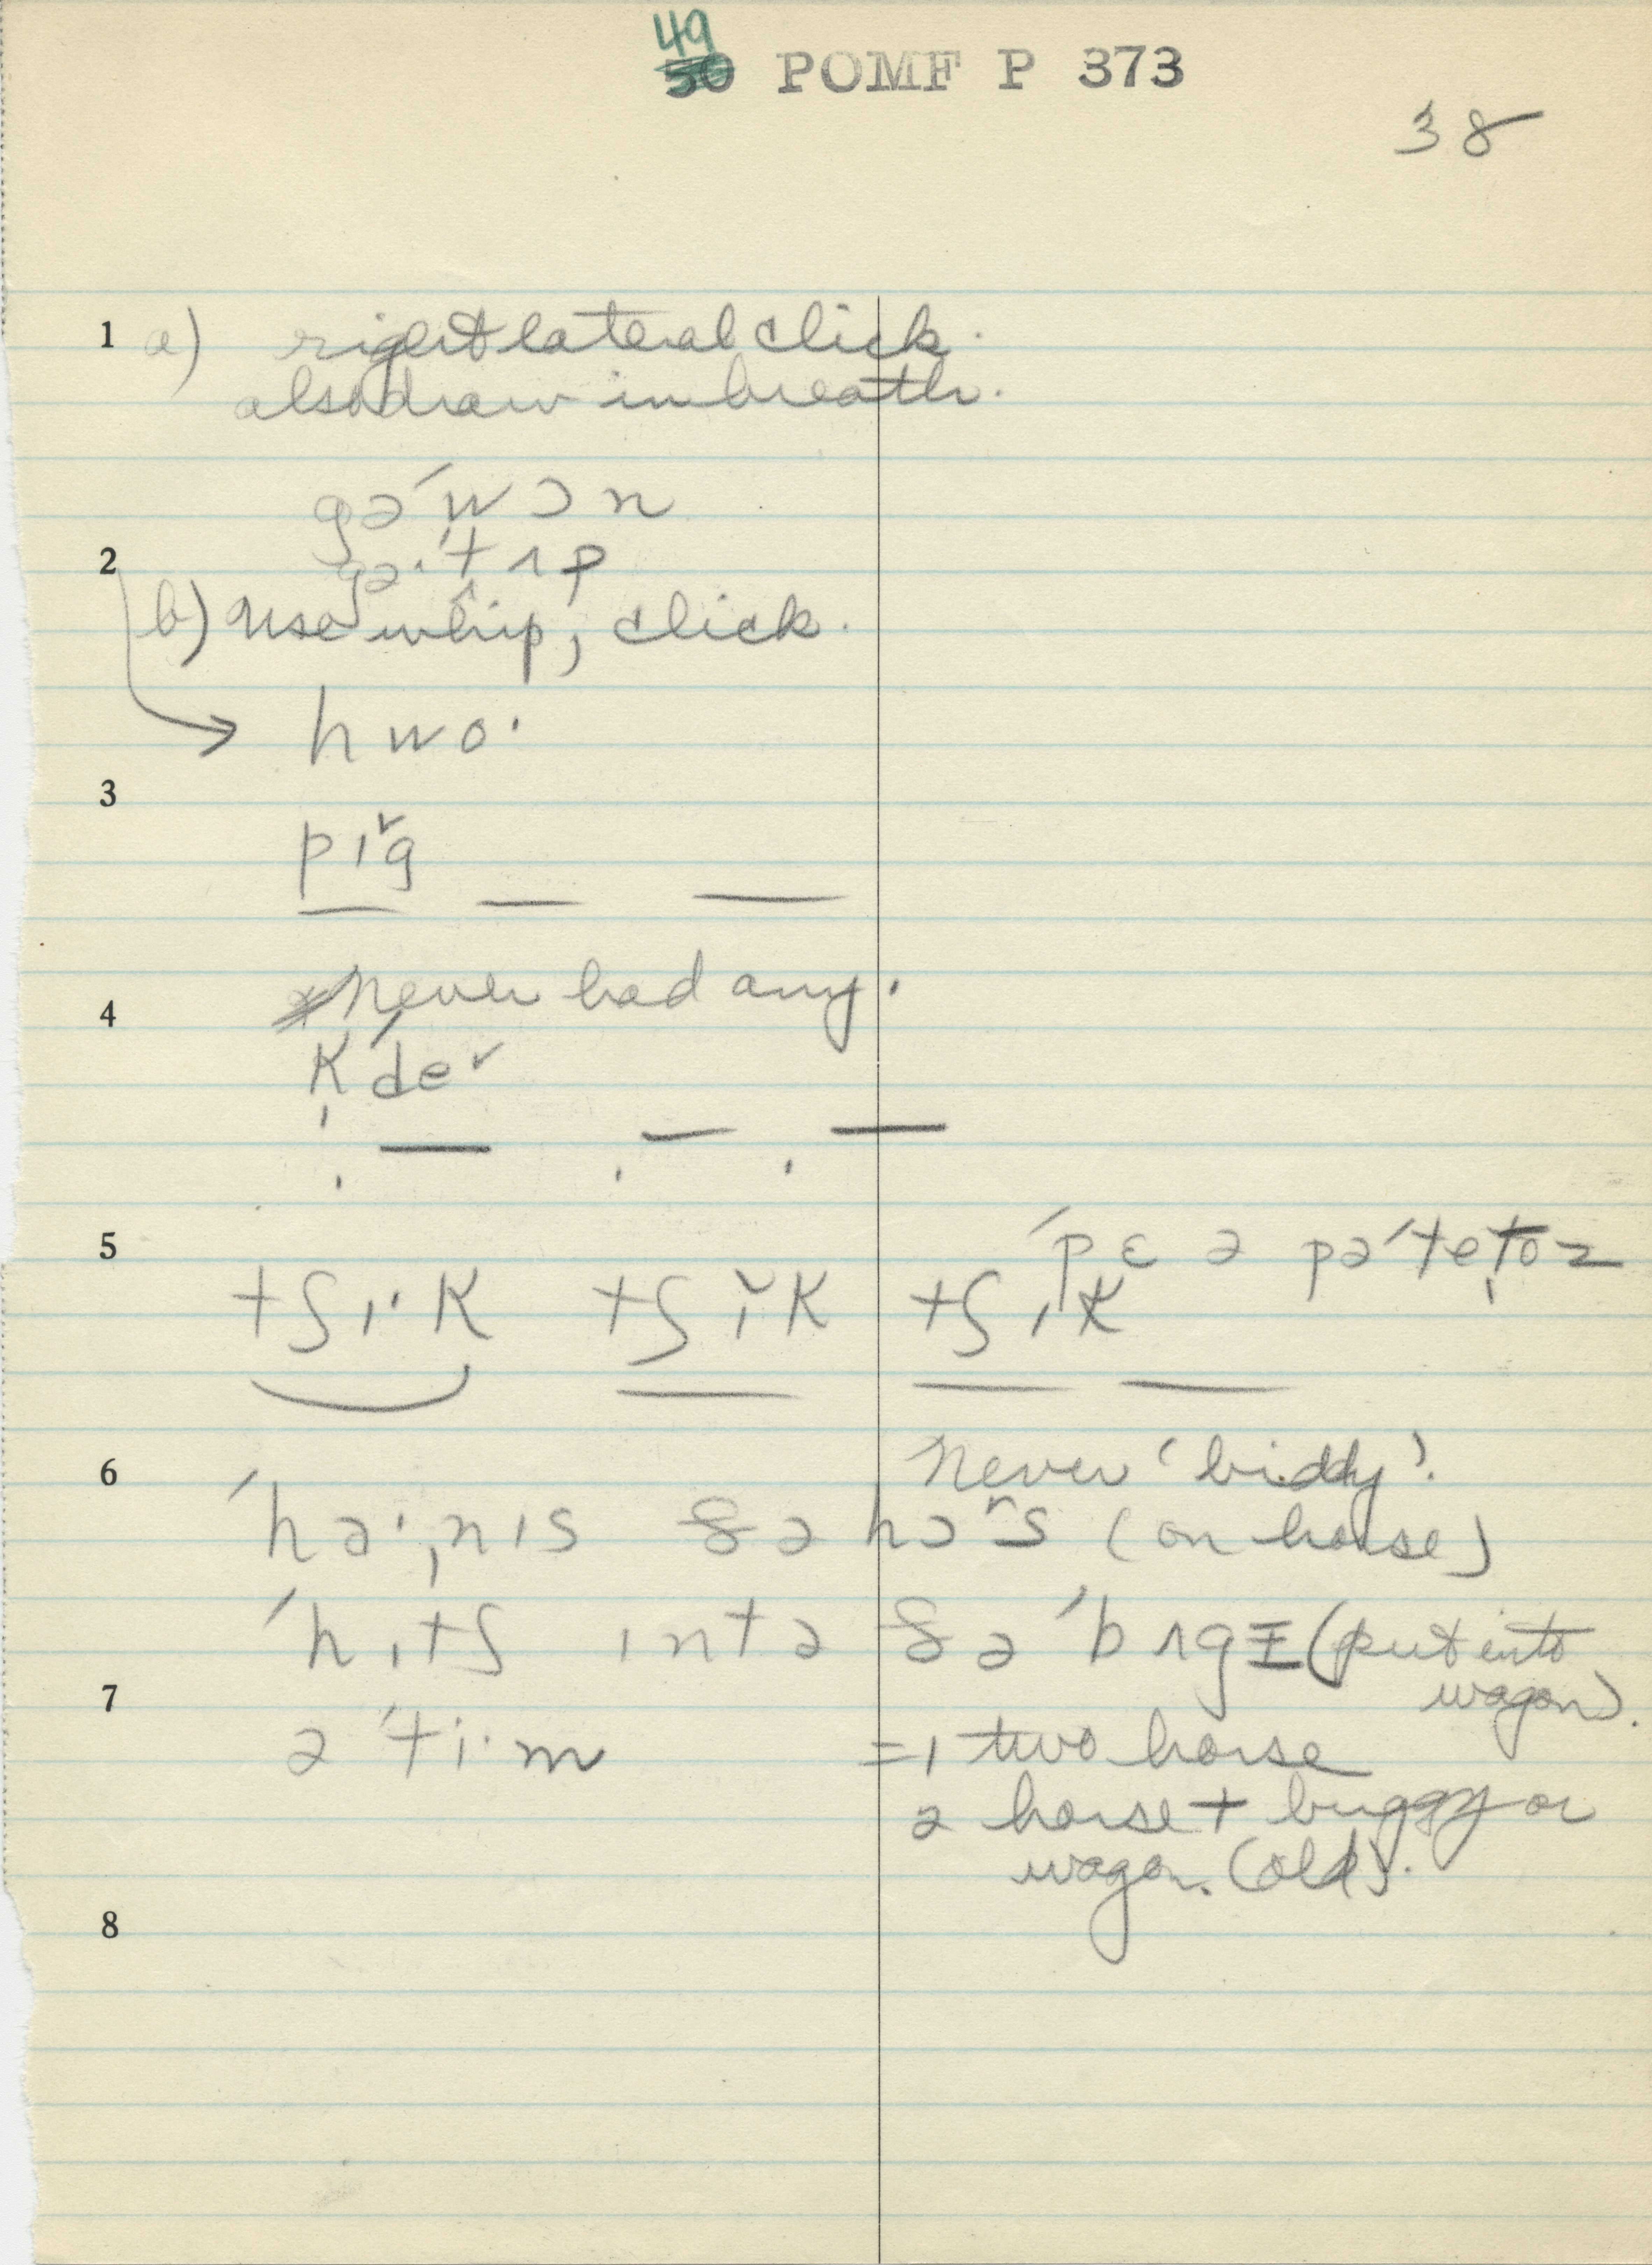 49
50 POMF P 373
38
1 a) right lateral click.
also draw in breath.
gə ˈwɔn
2 gə· ˈtʌp
b) use whip, click.
hwo·
3
pɪˇg
4 never had any.
kˈdeˇ
5 ˈpɛə pəˈtetoz
tʃɪ·k tʃɪˇk tʃɪk
6 never 'biddy'.
ˈhɑ·ˌnɪs ðə hɔʳs (on horse)
ˈhɪtʃ ɪntə ðə ˈbʌgɪ (put into
7 wagon).
ə ˈti·m =1 two horse
2 horse + buggy or
wagon. (old).
8